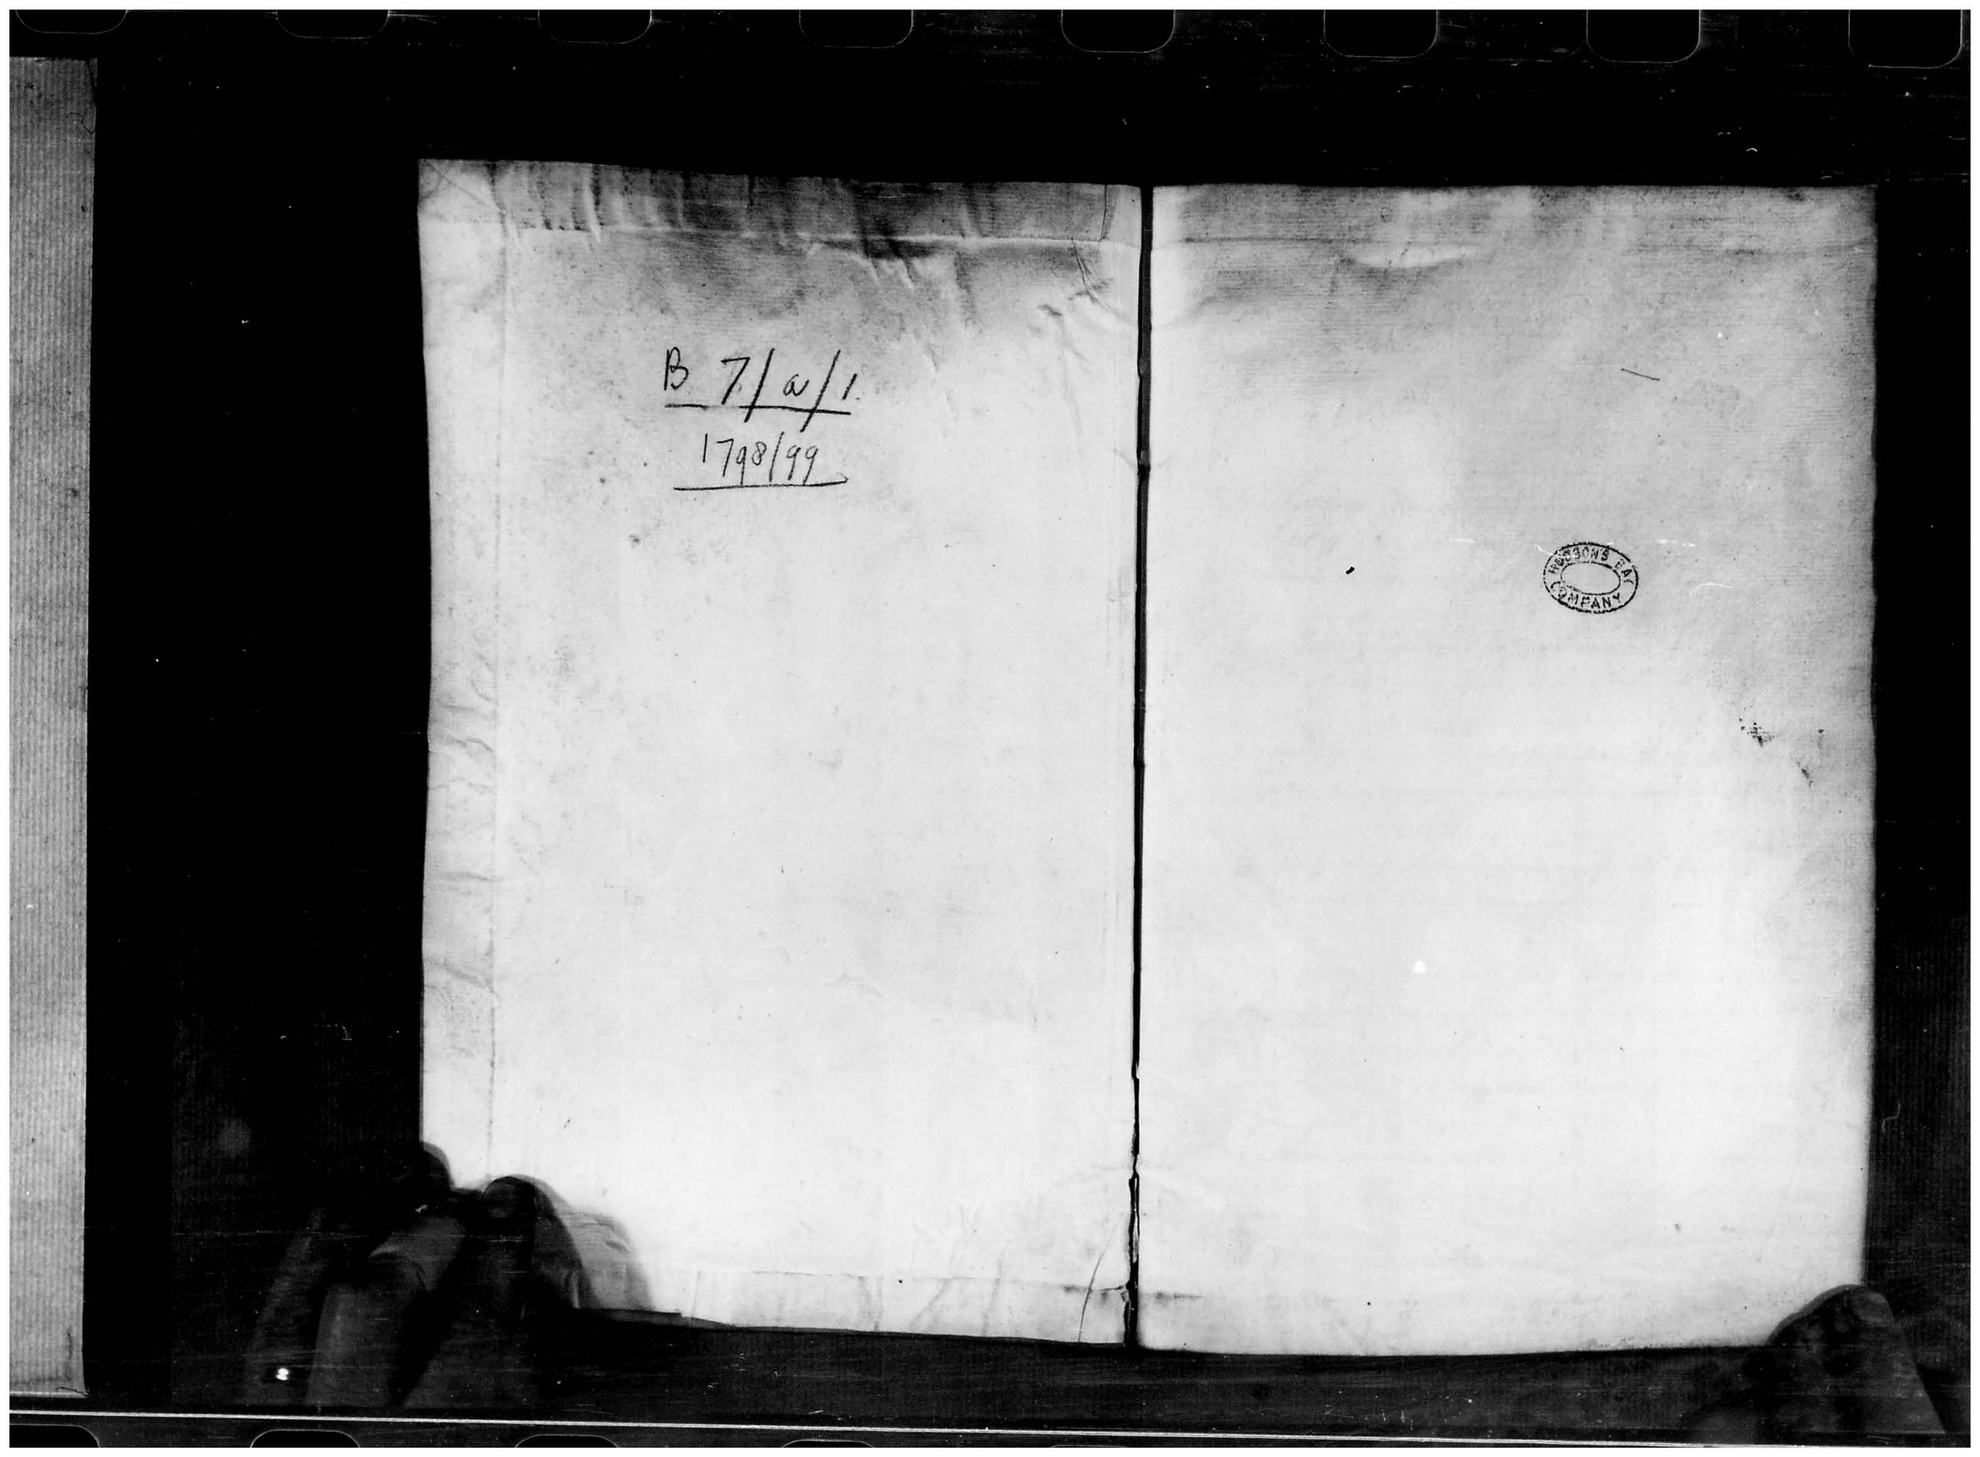 B 7/a/1.
1798/99
HUDSON'S BAY
COMPANY